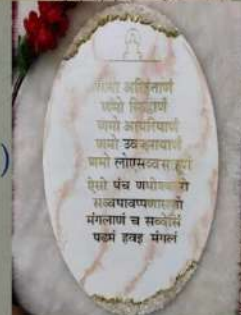 णमो अरिहंताणं
णमो सिद्धाणं
णमो आयरियाणं
णमो उवज्झायाणं
णमो लोएसव्वसाहूणं
ऐसो पंच णमोक्कारो
सव्वपावप्पणासणो
मंगलाणं च सव्वेसिं
पढमं हवइ मंगलं